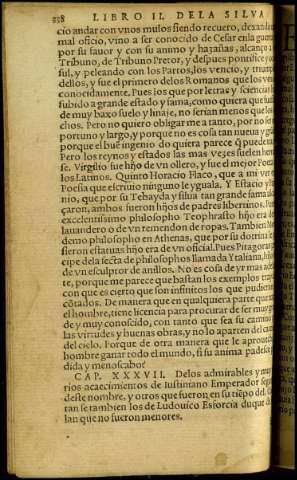 338 LIBRO II. DELA SILVA
cio andar con vnos mulos siendo recuero, dexando
mal oficio, vino a ser conocido de Cesar en la guerra
por su fauor y con su animo y hazañas, alcanço a
Tribuno, de Tribuno Pretor, y despues pontifice y
sul, y peleando con los Partos, los vencio, y
dellos, y fue el primero delos Romanos que los
conocidamente. Pues los que por letras y sciencias
subido a grande estado y fama, como quiera que
de muy baxo suelo y linaje, no serian menos que los
chos. Pero no quiero obligar me a tanto, por no
portuno y largo, y porque no es cosa tan nueua y
porque el bué ingenio do quiera parece q̃ puede
Pero los reynos y estados las mas vezes suelen
se. Virgilio fue hijo de vn ollero, y fue el mejor Poeta
los Latinos. Quinto Horacio Flaco, que a mi ver
Poesia que escriuio ninguno le yguala. Y Estacio y
nio, que por su Tebayda y silua tan grande fama
çaron, ambos fueron hijos de padres libertinos. Pues
excelentissimo philosopho Teophrasto hijo era de
lauandero o de vn remendon de ropas. Tambien
demo philosopho en Athenas, que por su doctrina le
sieron estatuas hijo era de vn oficial. Pues Pitagoras
cipe dela secta de philosophos llamada Ytaliana, hijo
de vn esculpror de anillos. No es cosa de yr mas
te, porque me parece que bastan los exemplos
con que es cierto que son infinitos los que pudieran
cõtados. De manera que en qualquiera parte que
el hombre, tiene licencia para procurar de ser muy
de y muy conocido, con tanto que sea su camino
las virtudes y buenas obras, y no lo aparten del
del cielo. Porque de otra manera que le aprouecha
hombre ganar todo el mundo, si su anima padesce
dida y menoscabo?
CAP. XXXVII. Delos admirables y
rios acaecimientos de Iustiniano Emperador
deste nombre, y otros que fueron en su tiẽpo del.
tan se tambien los de Ludouico Esforcia duque de
lan que no fueron menores.